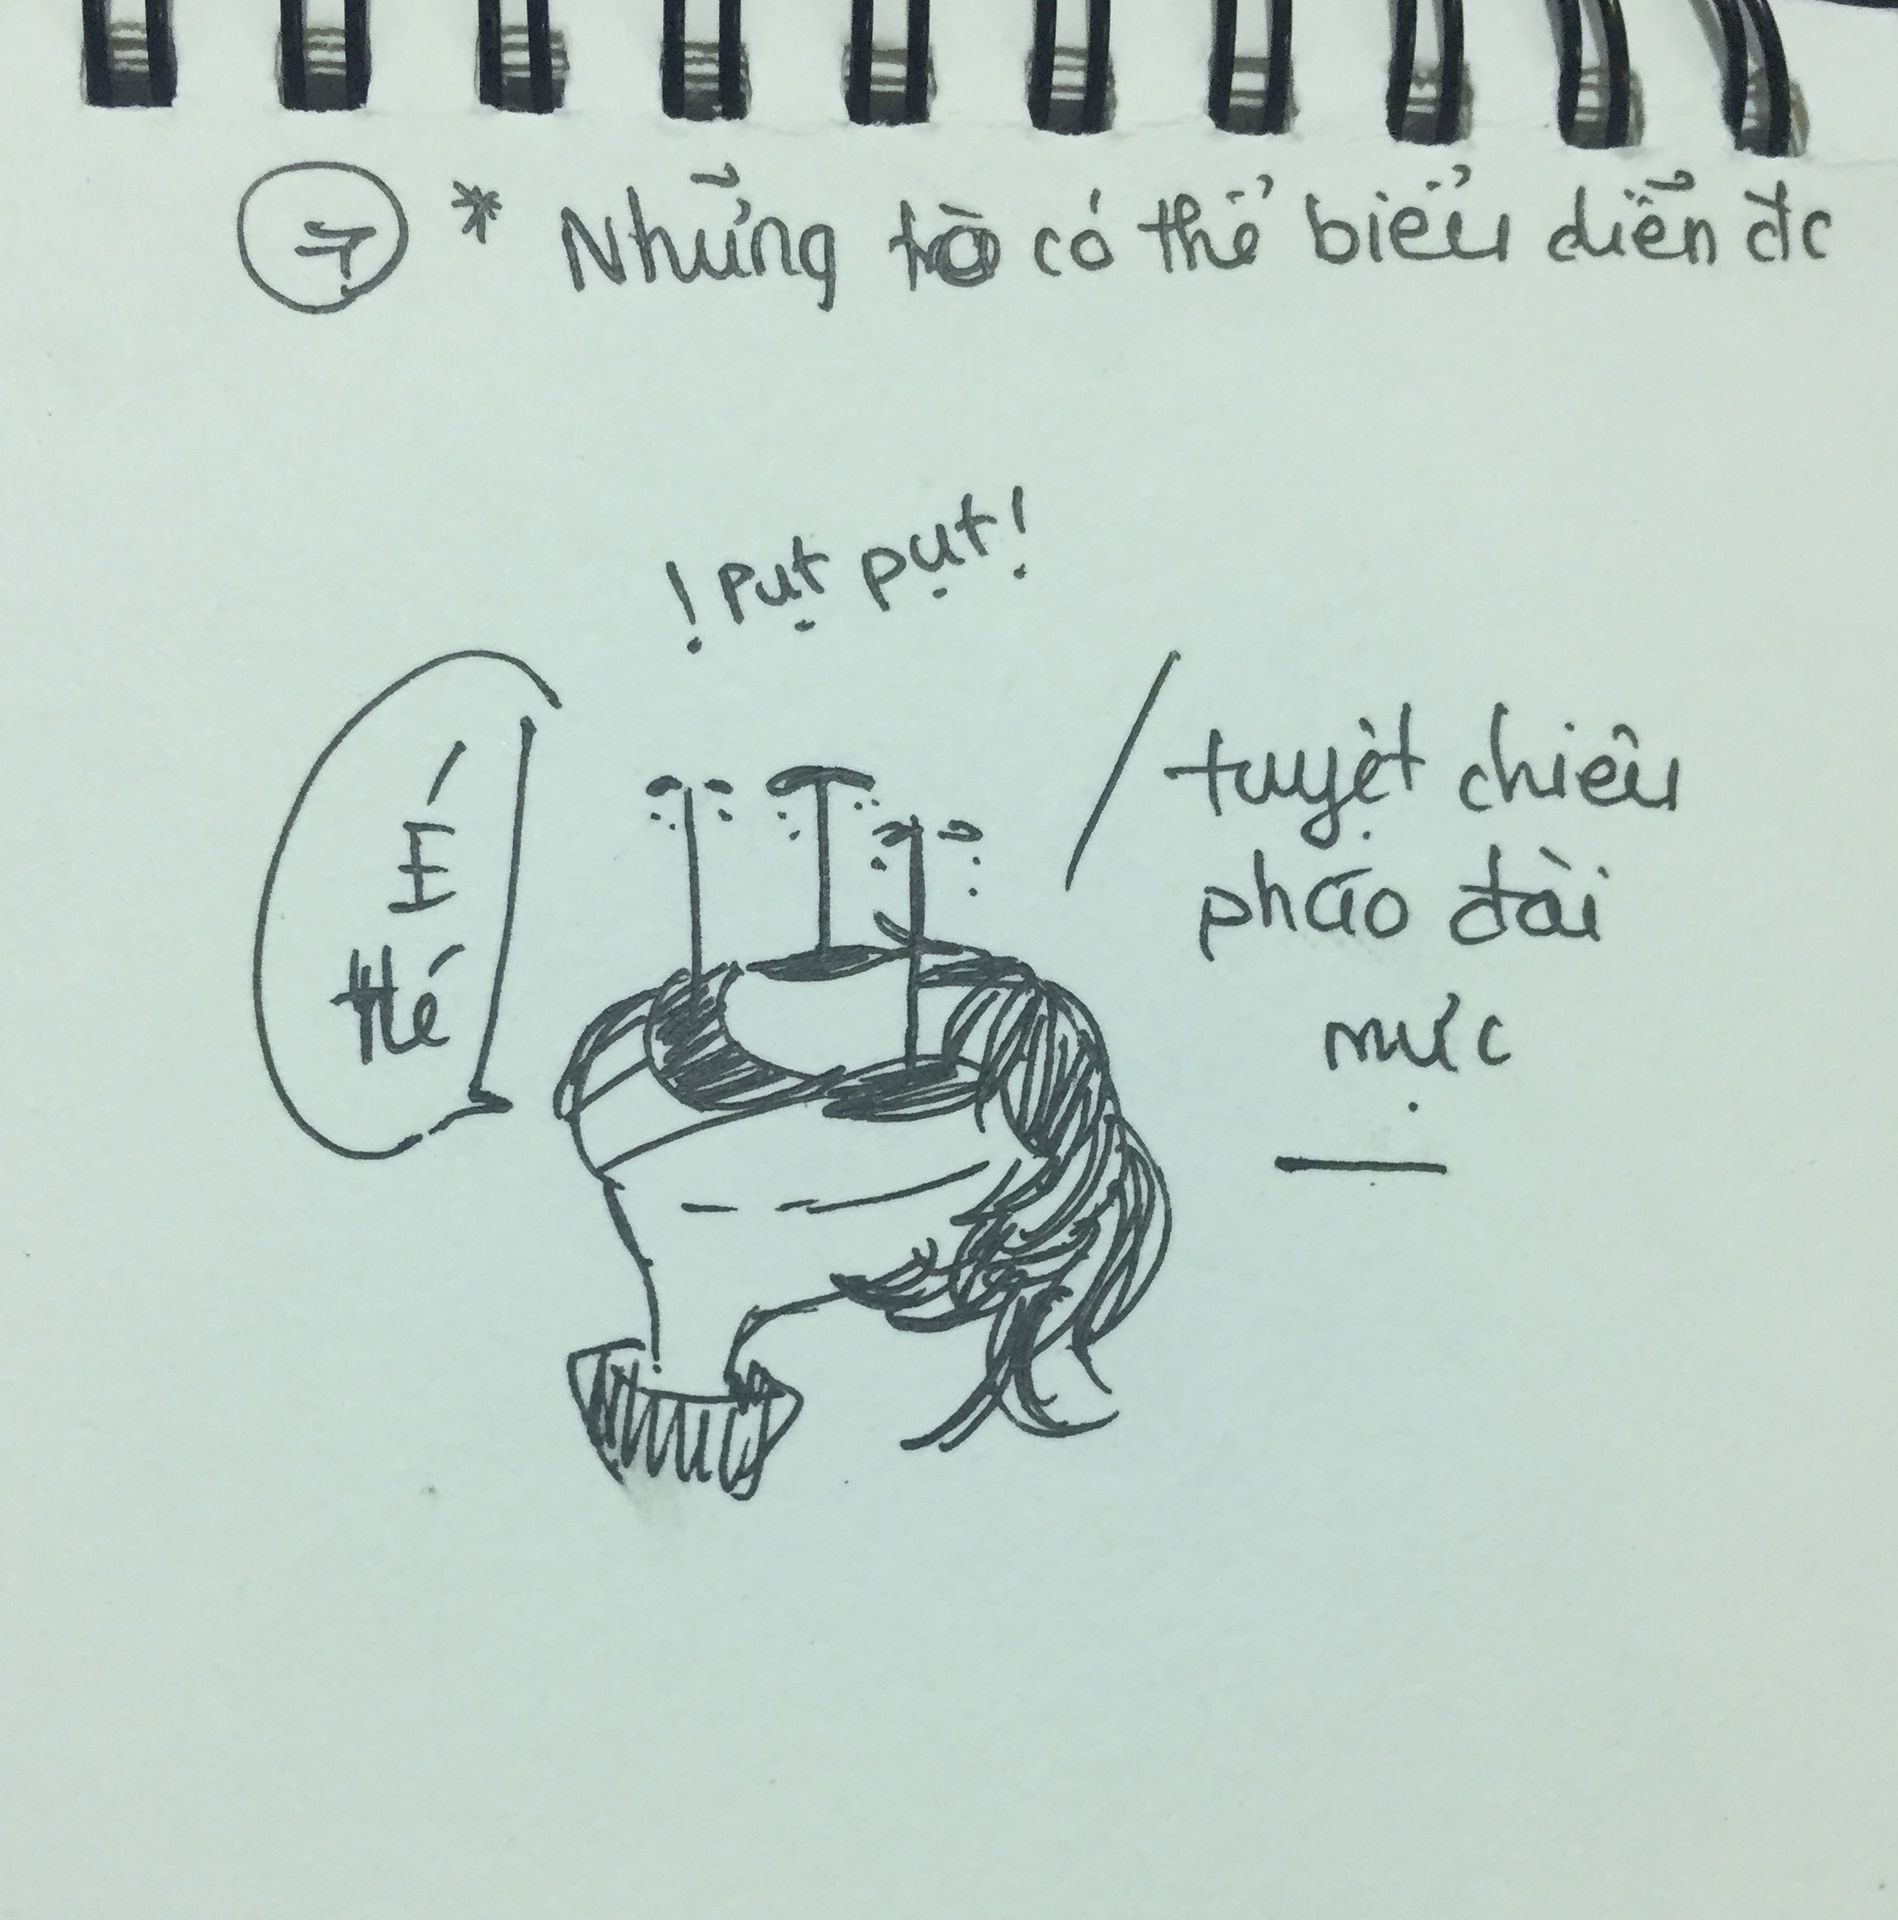 7 * Những trò có thể biểu diễn đc
! Pụt pụt!
É
Hé
tuyệt chiêu
pháo đài
mực